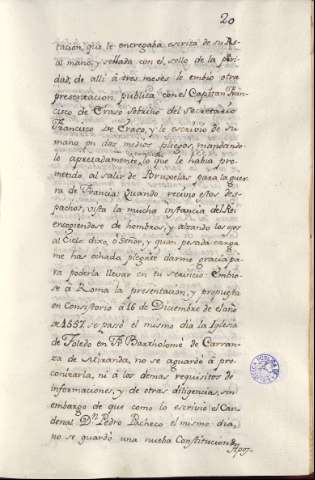 20
tacion, que le encregaba escrita de su Re-
al mano, y sellada con el sello de la puri-
dad, de alli à tres meses le embio otra
presentacion publica con el Capitan Fran-
cisco de Eraso sobrino del Secretario
Francisco de Eraso, y le escrivio de su
mano en dos medios pliegos, mandando-
lo apretadamente, lo que le habia pro-
metido al salir de Bruxelas para la guer-
ra de Francia: Quando recivio estos des-
pachos, vista la mucha instancia del Rei
encogiendose de hombros, y alzando los ojos
al Cielo dixo, ò Señor, y quan pesada carga
me has echado, plegate darme gracia pa-
ra poderla llevar en tu servicio. Embio-
se à Roma la presentacion, y propuesta
en Consistorio à 16 de Diciembre de el año
de 1557 se pasó el mismo dia la Iglesia
de Toledo en Fr. Bartholomè de Carran-
za de Miranda, no se aguardò à pre-
conizarla, ni à los demas requisitos de
informaciones, y de otras diligencias, sin
embargo de que como lo escrivio el Car-
denal Dn. Pedro Pacheco el mismo dia,
no se guardò una nueba Constitucion de
Apos-